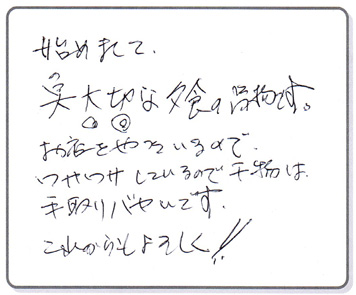 始めまして、
大切な夕食の品物です。
お店をやっているので、
しているので干物は
手取りバヤいです。
これからもよろしく!!